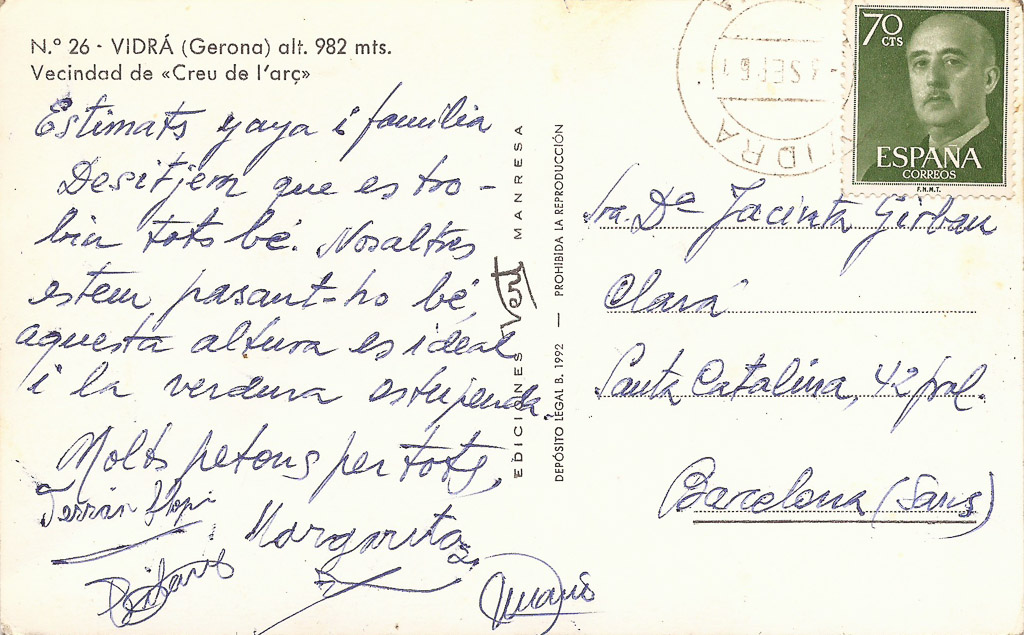 N.º 26 - VIDRÁ (Gerona) alt. 982 mts.
Vecindad de «Creu de l'arç»
Estimats yaya i familia
Desitjem que es tro-
bin tots bé. Nosaltres
estem pasant-ho bé,
aquesta altura es ideal
i la verdura estupenda.
Molts petons per tots,
Margarita
EDICIONES Vert MANRESA
DEPÓSITO LEGAL B. 1992 — PROHIBIDA LA REPRODUCCIÓN
VIDRA
SEP 61
70 CTS
ESPAÑA
CORREOS
F.N.M.T.
Sra. Dª Jacinta Girbau
Clará
Santa Catalina, 42 pral.
Barcelona (Sans)